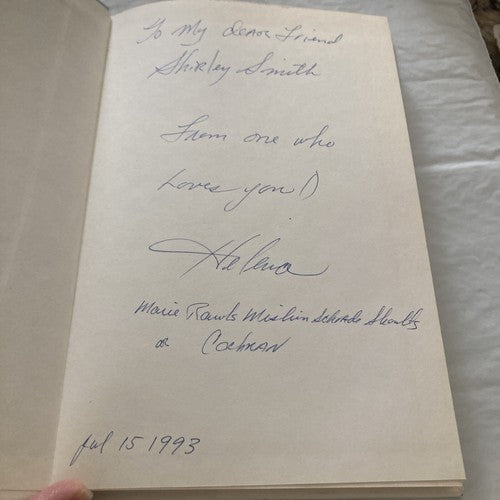 To My Dear Friend
Shirley Smith
From one who
Loves you!)
Helena
Marie Rawls
or Cochran
Jul 15 1993